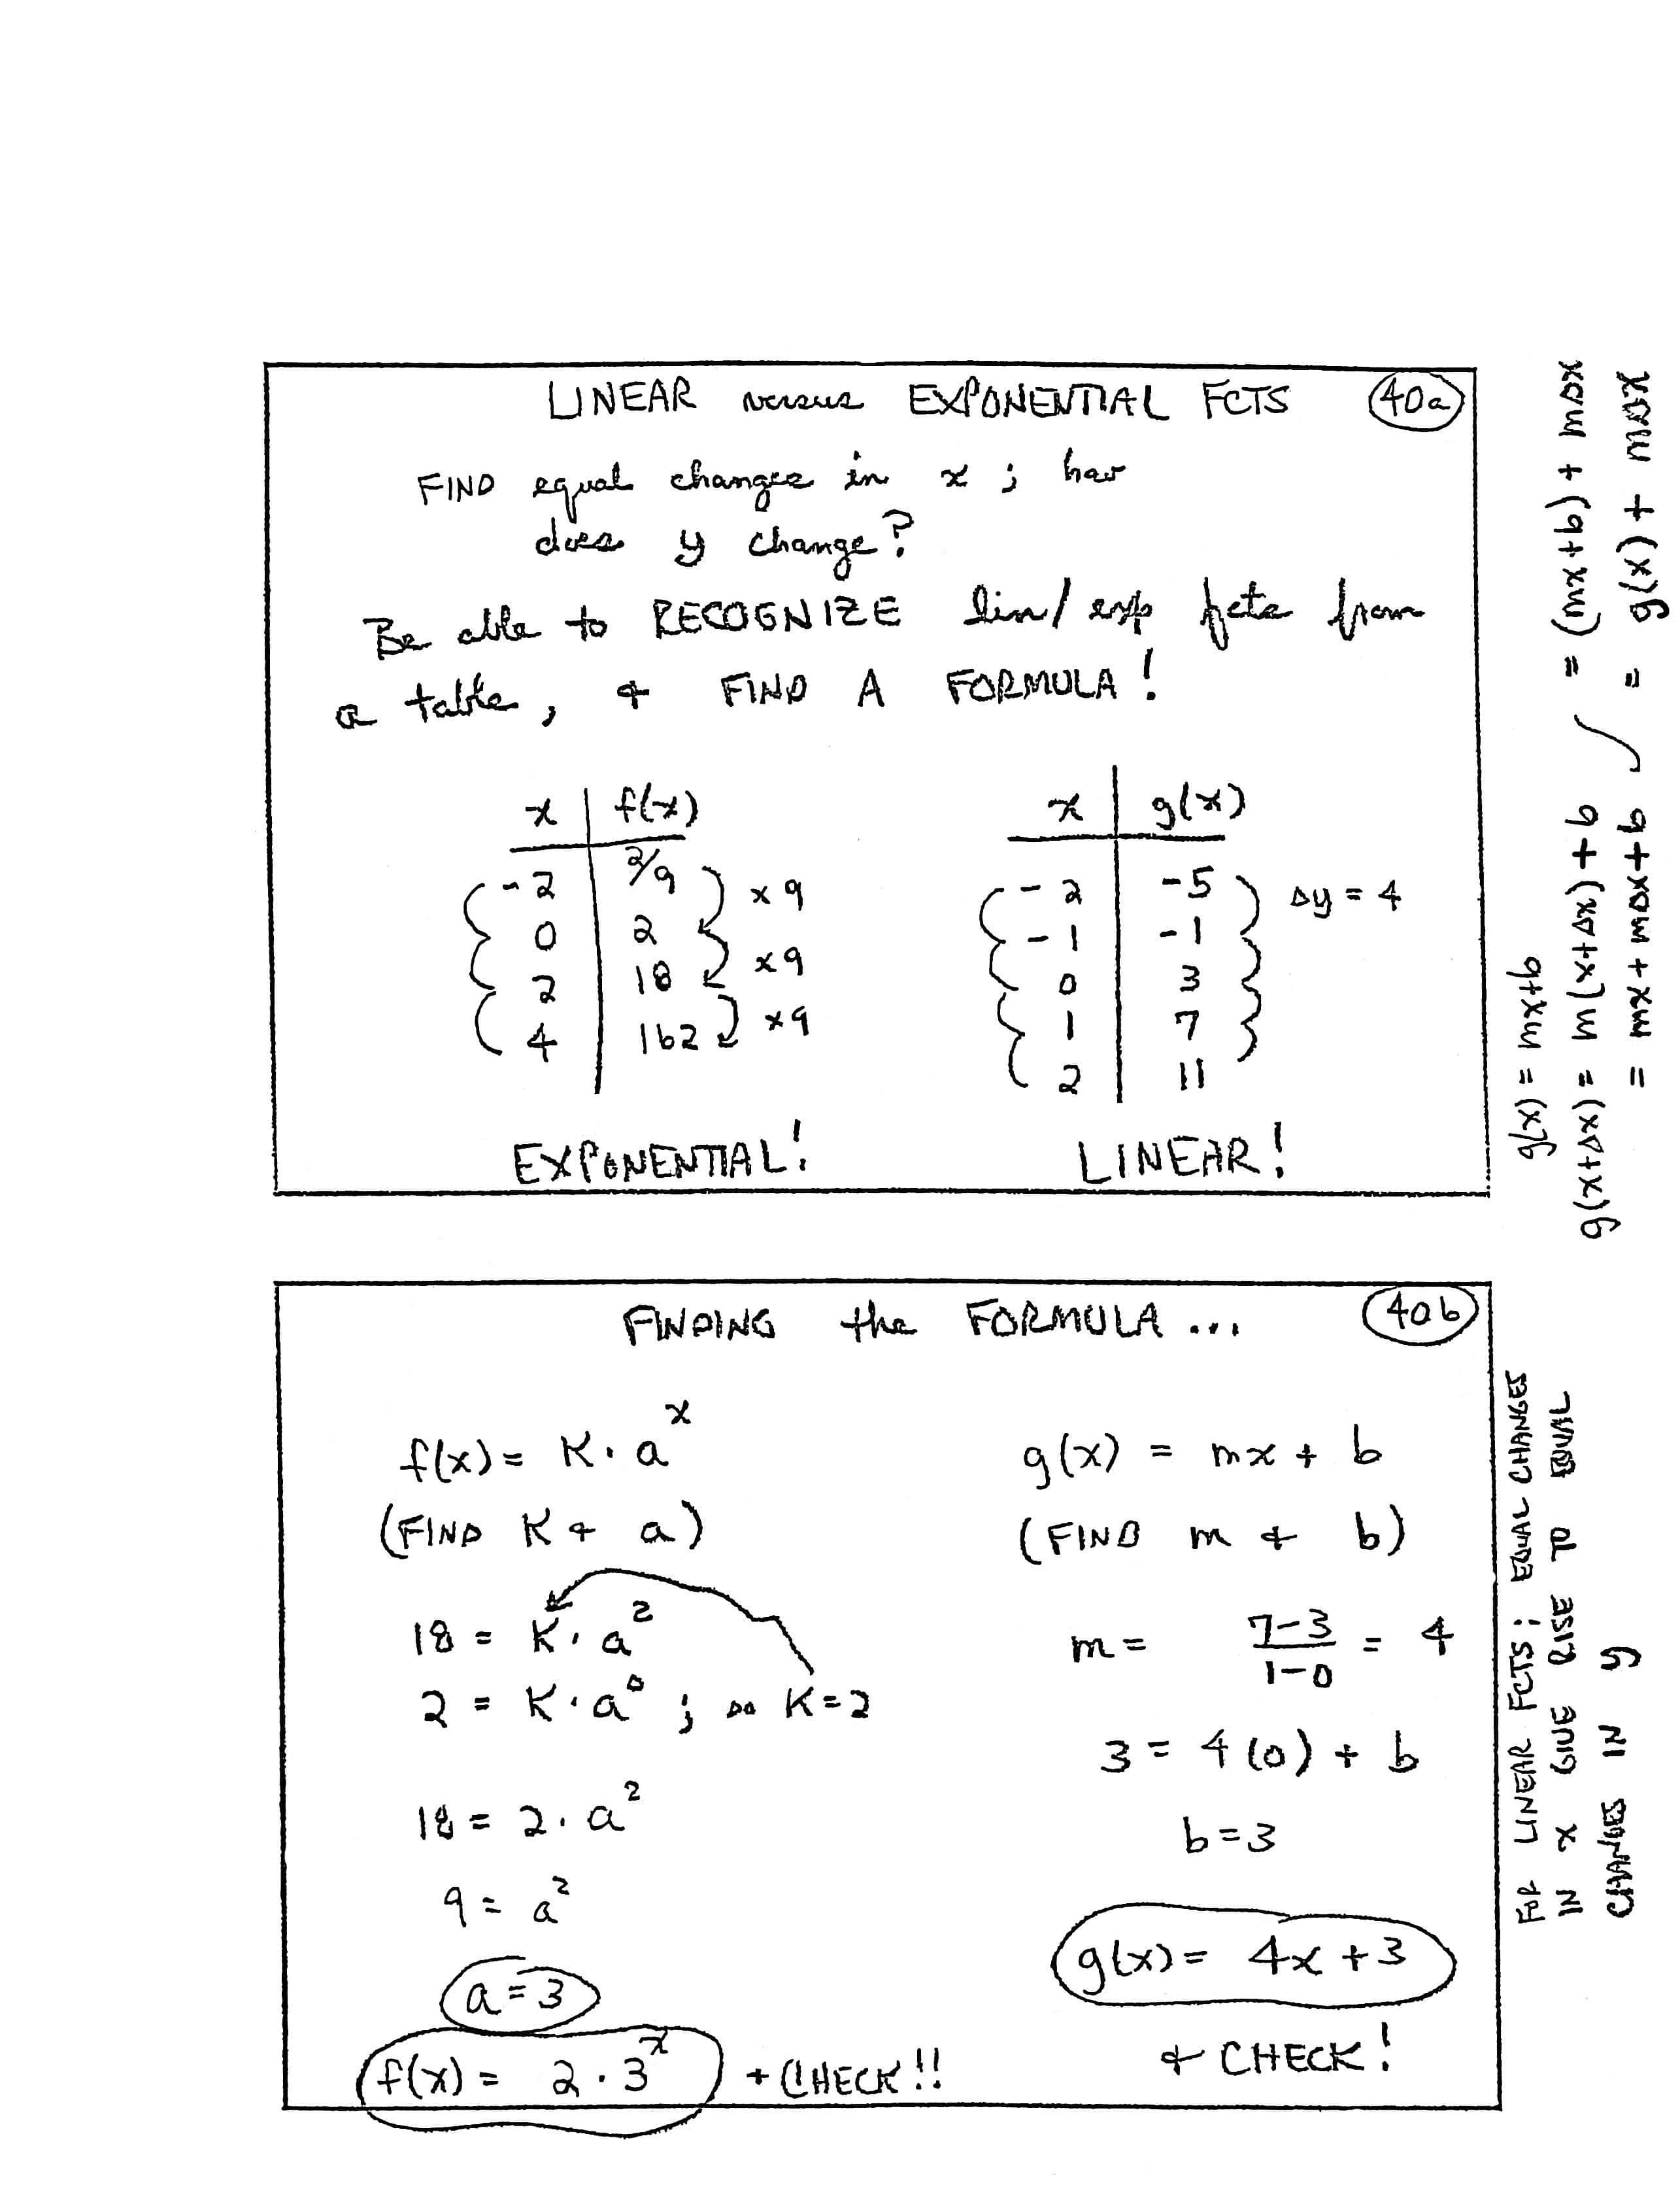 LINEAR versus EXPONENTIAL FCTS 40a
FIND equal changes in x ; how
does y change?
Be able to RECOGNIZE lin/exp fcts from
a table, & FIND A FORMULA!
x f(x)
-2 2/9
0 2
2 18
4 162
x9
x9
x9
EXPONENTIAL!
x g(x)
-2 -5
-1 -1
0 3
1 7
2 11
Δy = 4
LINEAR!
g(x) = mx+b
g(x+Δx) = m(x+Δx) + b = (mx+b) + mΔx
= mx+mΔx+b = g(x) + mΔx
FINDING the FORMULA ... 40b
f(x) = K · a^x
(FIND K & a)
18 = K · a^2
2 = K · a^0 ; so K=2
18 = 2 · a^2
9 = a^2
a = 3
f(x) = 2 · 3^x + CHECK!!
g(x) = mx + b
(FIND m & b)
m = 7-3/1-0 = 4
3 = 4(0) + b
b=3
g(x) = 4x+3
& CHECK!
FOR LINEAR FCTS ; EQUAL CHANGES
IN x GIVE RISE TO EQUAL
CHANGES IN y